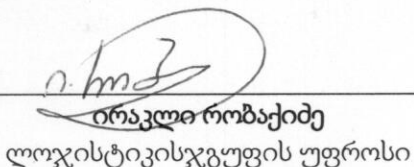 ი. რობ
ირაკლი რობაქიძე
ლოჯისტიკისჯგუფის უფროსი